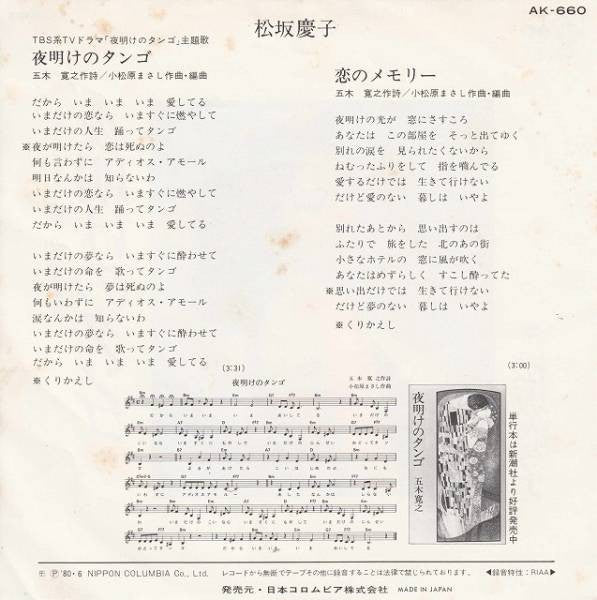 AK-660
松坂慶子
TBS系TVドラマ「夜明けのタンゴ」主題歌
夜明けのタンゴ
五木 寛之作詩／小松原まさし作曲・編曲
だから いま いま いま 愛してる
いまだけの恋なら いますぐに燃やして
いまだけの人生 踊ってタンゴ
※夜が明けたら 恋は死ぬのよ
何も言わずに アディオス・アモール
明日なんかは 知らないわ
いまだけの恋なら いますぐに燃やして
いまだけの人生 踊ってタンゴ
だから いま いま いま 愛してる
いまだけの夢なら いますぐに酔わせて
いまだけの命を 歌ってタンゴ
夜が明けたら 夢は死ぬのよ
何もいわずに アディオス・アモール
涙なんかは 知らないわ
いまだけの夢なら いますぐに酔わせて
いまだけの命を 歌ってタンゴ
だから いま いま いま 愛してる
※くりかえし
(3:31)
恋のメモリー
五木 寛之作詩／小松原まさし作曲・編曲
夜明けの光が 窓にさすころ
あなたは この部屋を そっと出てゆく
別れの涙を 見られたくないから
ねむったふりをして 指を噛んでる
愛するだけでは 生きて行けない
だけど愛のない 暮しは いやよ
別れたあとから 思い出すのは
ふたりで 旅をした 北のあの街
小さなホテルの 窓に風が吹く
あなたはめずらしく すこし酔ってた
※思い出だけでは 生きて行けない
だけど夢のない 暮しは いやよ
※くりかえし
(3:00)
夜明けのタンゴ
五木 寛之作詩
小松原まさし作曲
夜明けのタンゴ
五木寛之
単行本は新潮社より好評発売中
Ⓟ'80・6 NIPPON COLUMBIA Co., Ltd.
レコードから無断でテープその他に録音することは法律で禁じられております。
◀録音特性：RIAA▶
発売元・日本コロムビア株式会社 MADE IN JAPAN